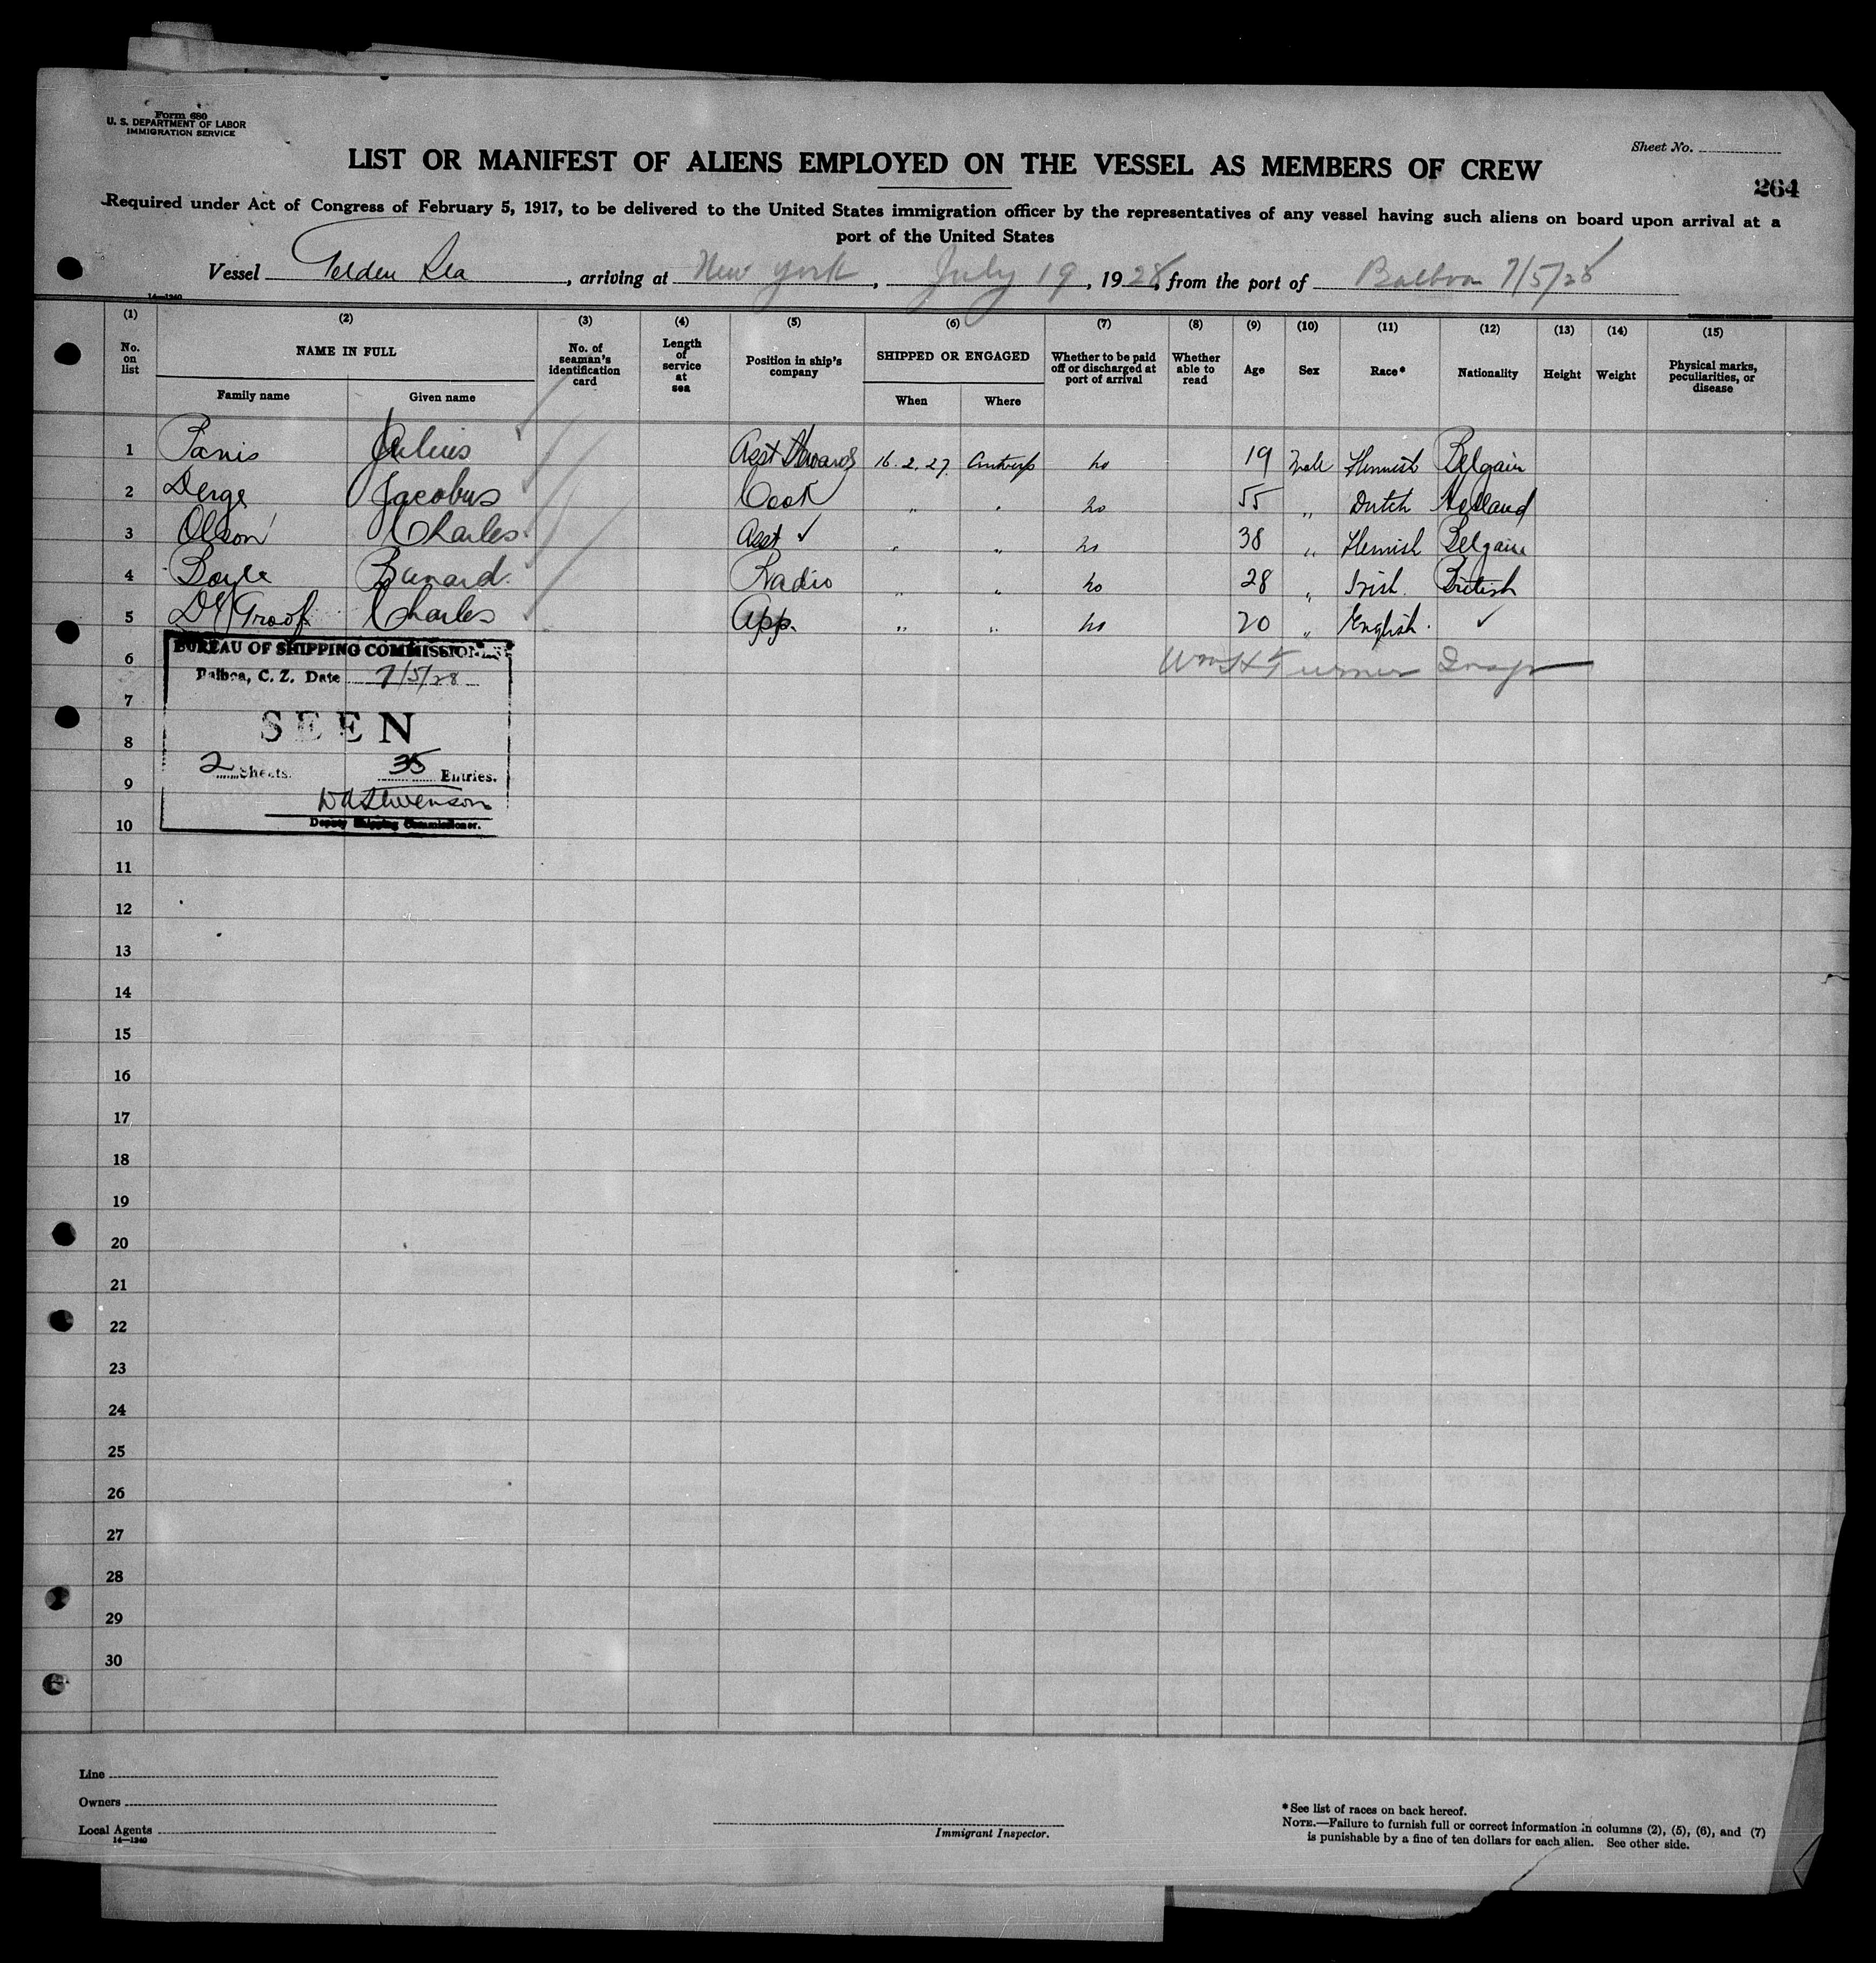 Form 680
U. S. DEPARTMENT OF LABOR
IMMIGRATION SERVICE
Sheet No.
LIST OR MANIFEST OF ALIENS EMPLOYED ON THE VESSEL AS MEMBERS OF CREW
264
Required under Act of Congress of February 5, 1917, to be delivered to the United States immigration officer by the representatives of any vessel having such aliens on board upon arrival at a
port of the United States
Vessel Golden Sea, arriving at New York, July 19, 1928, from the port of Balboa 7/5/28
14—1240
(1) (2) (3) (4) (5) (6) (7) (8) (9) (10) (11) (12) (13) (14) (15)
No. on list NAME IN FULL Family name Given name No. of seaman's identification card Length of service at sea Position in ship's company SHIPPED OR ENGAGED When Where Whether to be paid off or discharged at port of arrival Whether able to read Age Sex Race* Nationality Height Weight Physical marks, peculiarities, or disease
1 Panis Julius Asst Steward 16.2.27. Antwerp no 19 Male Flemish Belgain
2 Derge Jacobus Cook " " no 55 " Dutch Holland
3 Olson Charles Asst ✓ " " no 38 " Flemish Belgain
4 Boyle Banard. Radio " " no 28 " Irish. British
5 De Groof Charles App. " " no 20 " English. ✓
6 Wm H Turner Insp
BUREAU OF SHIPPING COMMISSIONER
Balboa, C. Z. Date 7/5/28
7
SEEN
8
2 Sheets. 35 Entries.
9
Deputy Shipping Commissioner.
10
11
12
13
14
15
16
17
18
19
20
21
22
23
24
25
26
27
28
29
30
Line
Owners
Local Agents
14—1240
Immigrant Inspector.
*See list of races on back hereof.
NOTE.—Failure to furnish full or correct information in columns (2), (5), (6), and (7)
is punishable by a fine of ten dollars for each alien. See other side.